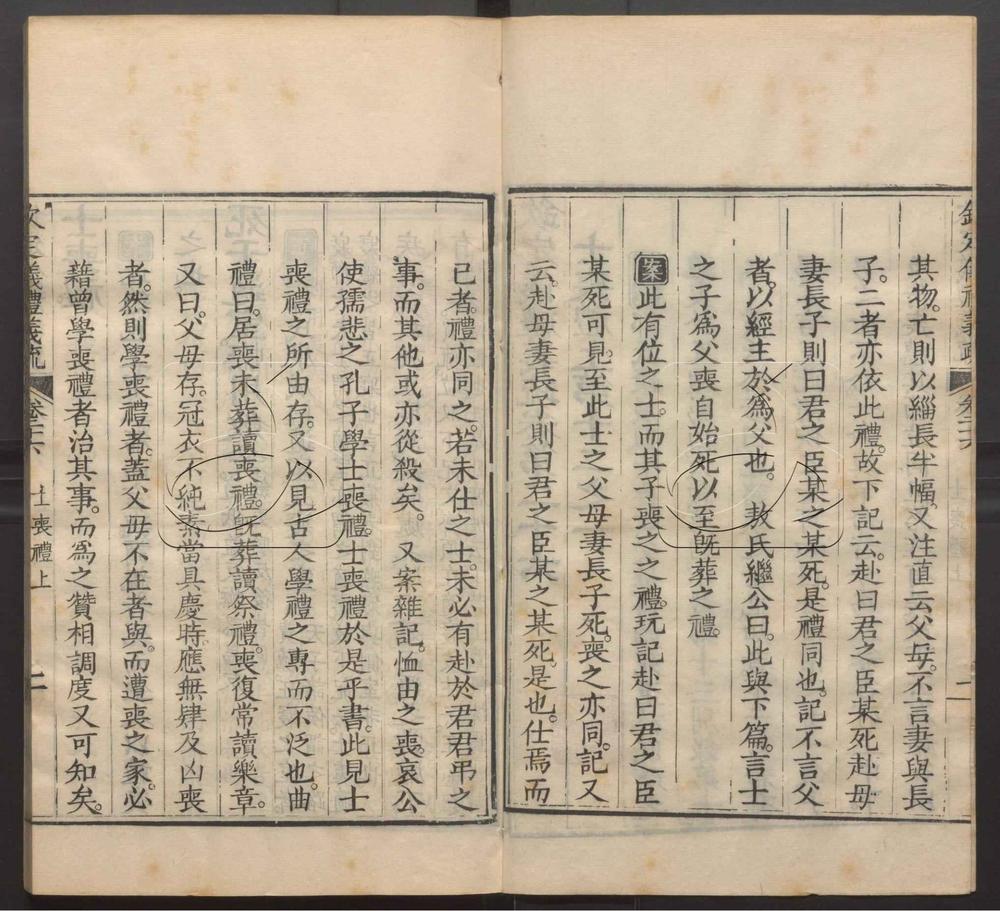 欽定儀禮義疏 卷二十六 一
其物。亡則以緇長半幅。又注直云父母。不言妻與長
子。二者亦依此禮。故下記云。赴曰君之臣某死。赴母
妻長子則曰君之臣某之某死。是禮同也。記不言父
者。以經主於為父也。 敖氏繼公曰。此與下篇。言士
之子為父喪自始死以至旣葬之禮。
案此有位之士。而其子喪之之禮。玩記赴曰君之臣
某死可見。至此士之父母妻長子死。喪之亦同。記又
云。赴母妻長子則曰君之臣某之某死。是也。仕焉而
已者。禮亦同之。若未仕之士。未必有赴於君君弔之
事。而其他或亦從殺矣。 又案雜記。恤由之喪。哀公
使孺悲之孔子學士喪禮。士喪禮於是乎書。此見士
喪禮之所由存。又以見古人學禮之專而不泛也。曲
禮曰。居喪未葬讀喪禮。旣葬讀祭禮。喪復常讀樂章。
又曰。父母存。冠衣不純素。當具慶時。應無肆及凶喪
者。然則學喪禮者。蓋父母不在者與。而遭喪之家。必
藉曾學喪禮者治其事。而為之贊相調度又可知矣。
欽定儀禮義疏 卷二十六 士喪禮上 二